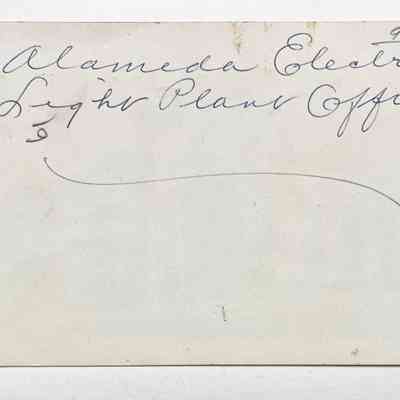 Alameda Electr
Light Plant Offi